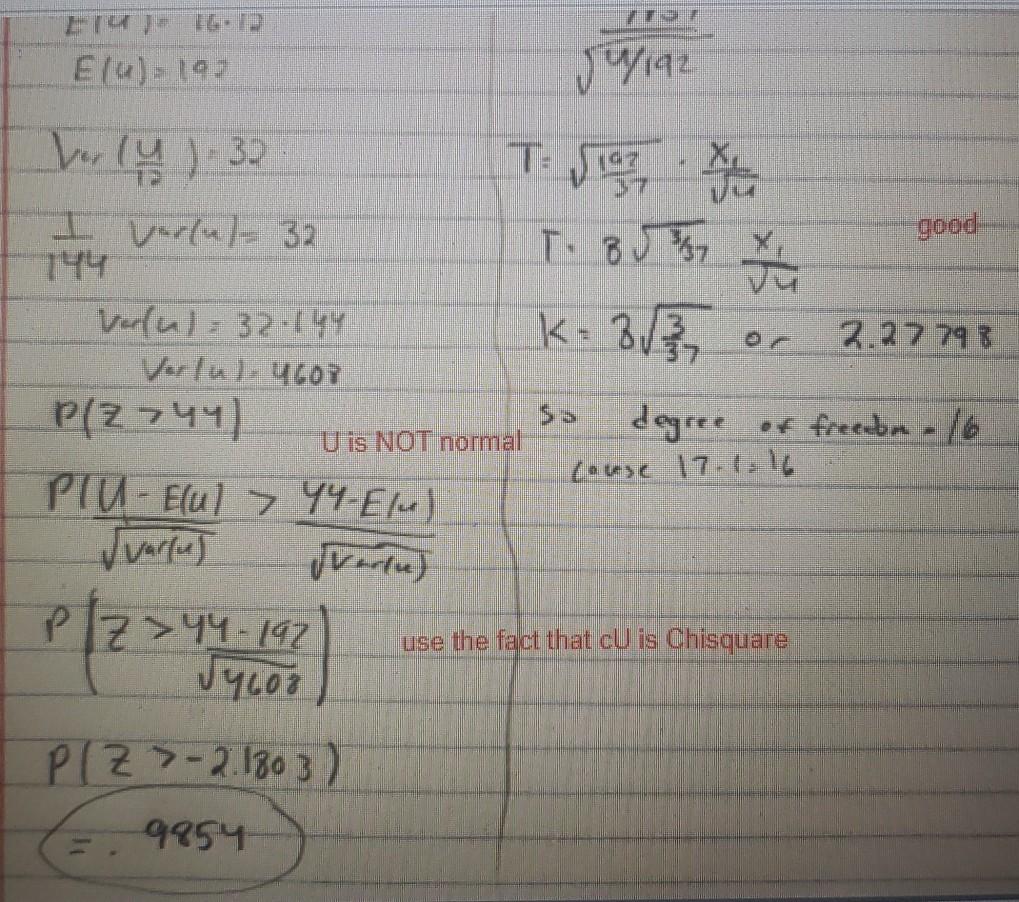 E(U) = 16·12
E(u) = 192
Var(U/12) = 32
1/144 Var(u) = 32
Var(u) = 32·144
Var(u) = 4608
P(Z > 44)
U is NOT normal
P(U - E(u)/√Var(u) > 44 - E(u)/√Var(u))
P(Z > 44 - 192/√4608)
use the fact that cU is Chisquare
P(Z > -2.1803)
= .9854
√U/192
T = √192/37 · X₁/√u
T = 8√3/37 X₁/√u
good
K = 8√3/37 or 2.27798
so degree of freedom = 16
cause 17-1=16